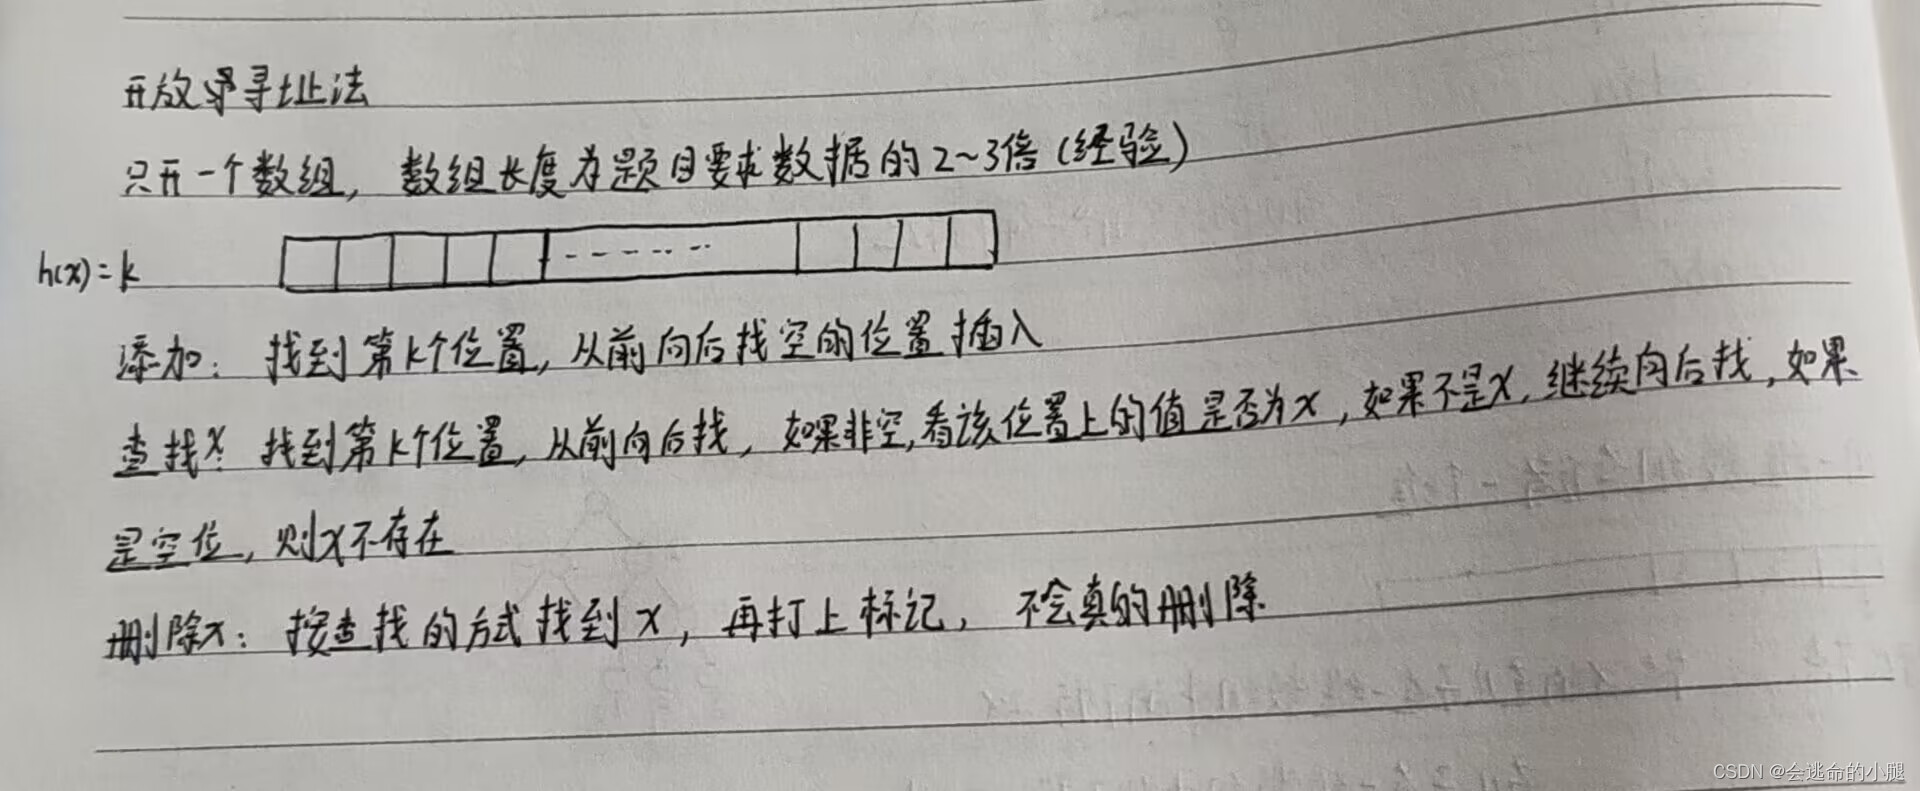 开放寻址法
只开一个数组，数组长度为题目要求数据的2~3倍(经验)
h(x)=k
添加：找到第k个位置，从前向后找空的位置插入
查找x：找到第k个位置，从前向后找，如果非空，看该位置上的值是否为x，如果不是x，继续向后找，如果
是空位，则x不存在
删除x：按查找的方式找到x，再打上标记，不会真的删除
CSDN @会逃命的小腿